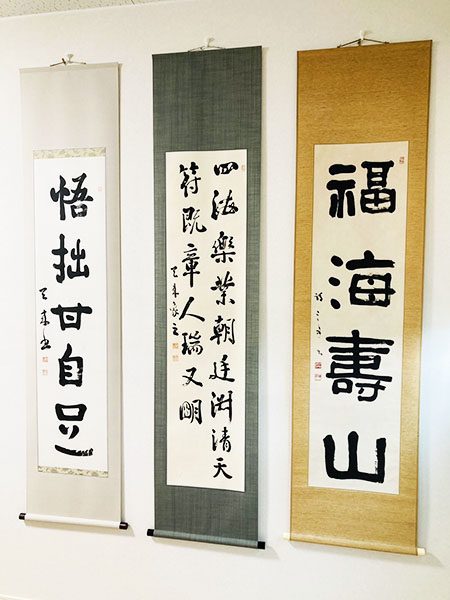 福海壽山
四海樂業朝廷渊清天
符既章人瑞又明
悟拙甘自足